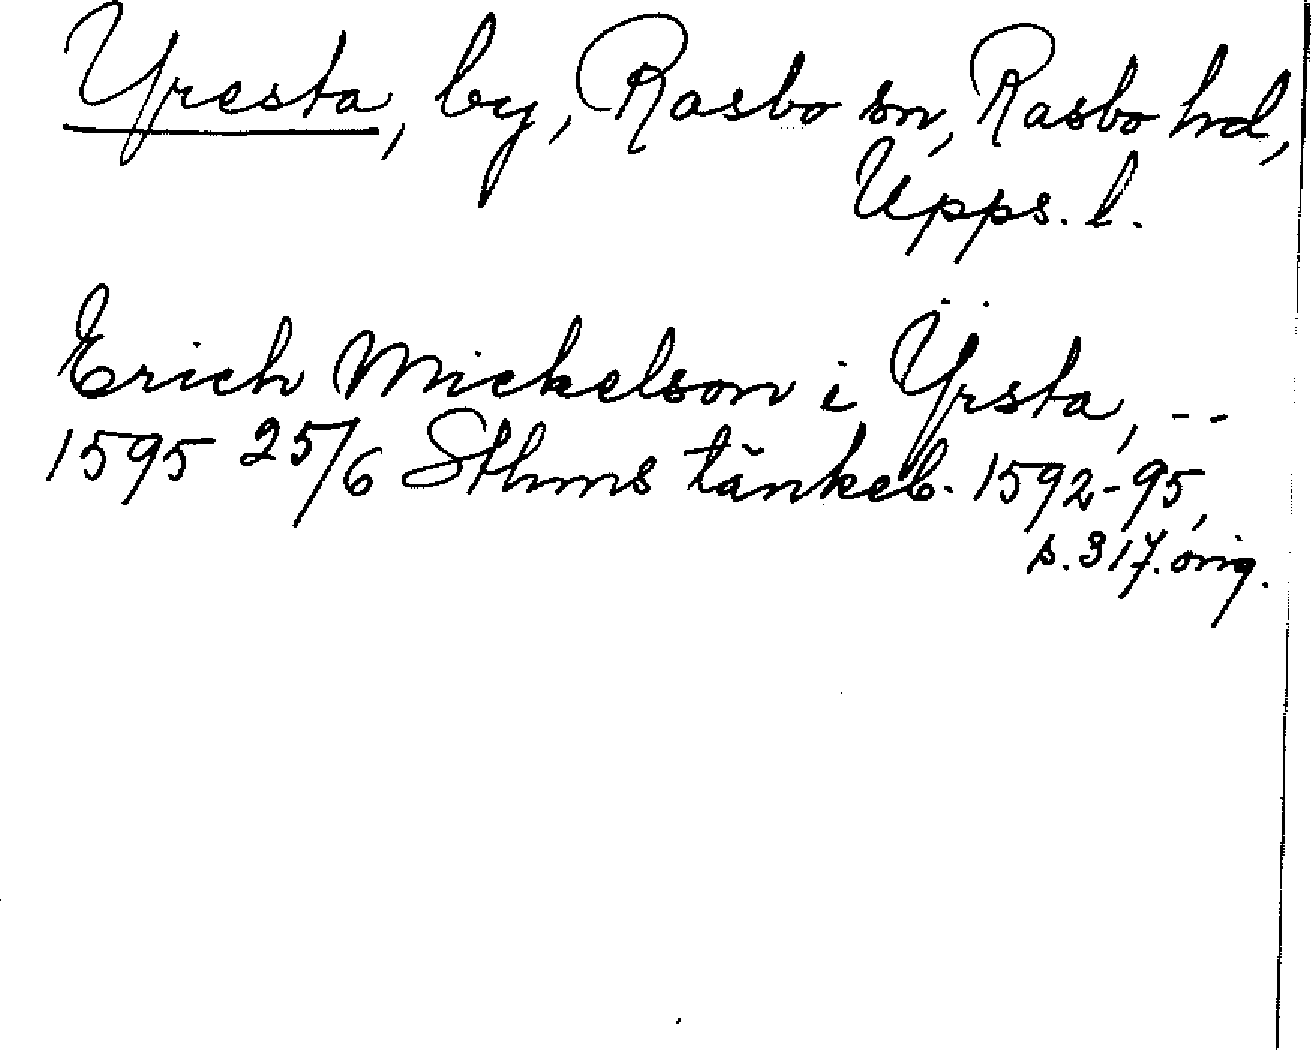 Yresta, by, Rasbo sn, Rasbo hd,
Upps. l.
Erich Mickelson i Ÿrsta, --
1595 25/6 Sthms tänkeb. 1592-95,
s. 317. orig.